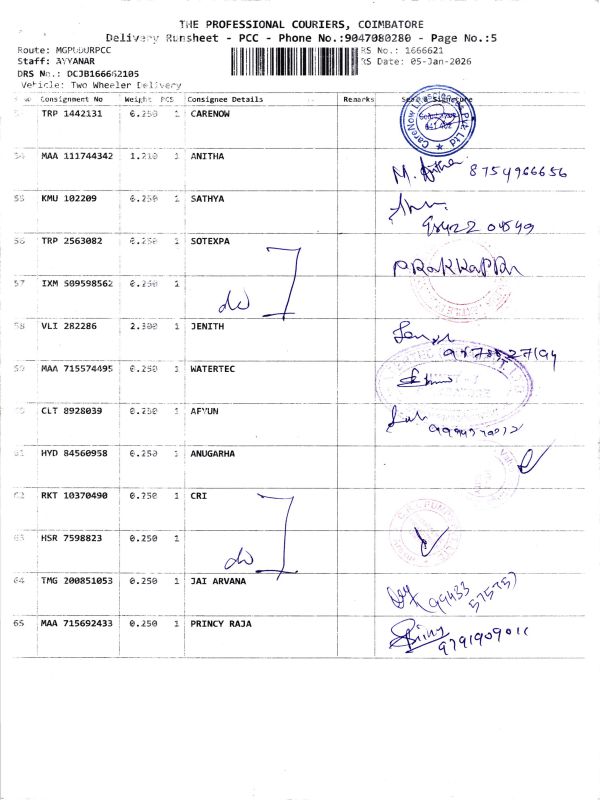 THE PROFESSIONAL COURIERS, COIMBATORE
Delivery Runsheet - PCC - Phone No.:9047080280 - Page No.:5
Route: MGPUDURPCC RS No.: 1666621
Staff: AYYANAR RS Date: 05-Jan-2026
DRS No.: DCJB166662105
Vehicle: Two Wheeler Delivery
Consignment No Weight PCS Consignee Details Remarks Seal & Signature
TRP 1442131 0.250 1 CARENOW
54 MAA 111744342 1.210 1 ANITHA M. Anitha 8754966656
55 KMU 102209 0.250 1 SATHYA 98422 04549
56 TRP 2563082 0.250 1 SOTEXPA
57 IXM 509598562 0.250 1 do
58 VLI 282286 2.300 1 JENITH
59 MAA 715574495 0.250 1 WATERTEC
60 CLT 8928039 0.250 1 AFYUN
61 HYD 84560958 0.250 1 ANUGARHA
62 RKT 10370490 0.250 1 CRI
63 HSR 7598823 0.250 1 do
64 TMG 200851053 0.250 1 JAI ARVANA 99433 57575
65 MAA 715692433 0.250 1 PRINCY RAJA 9791909011